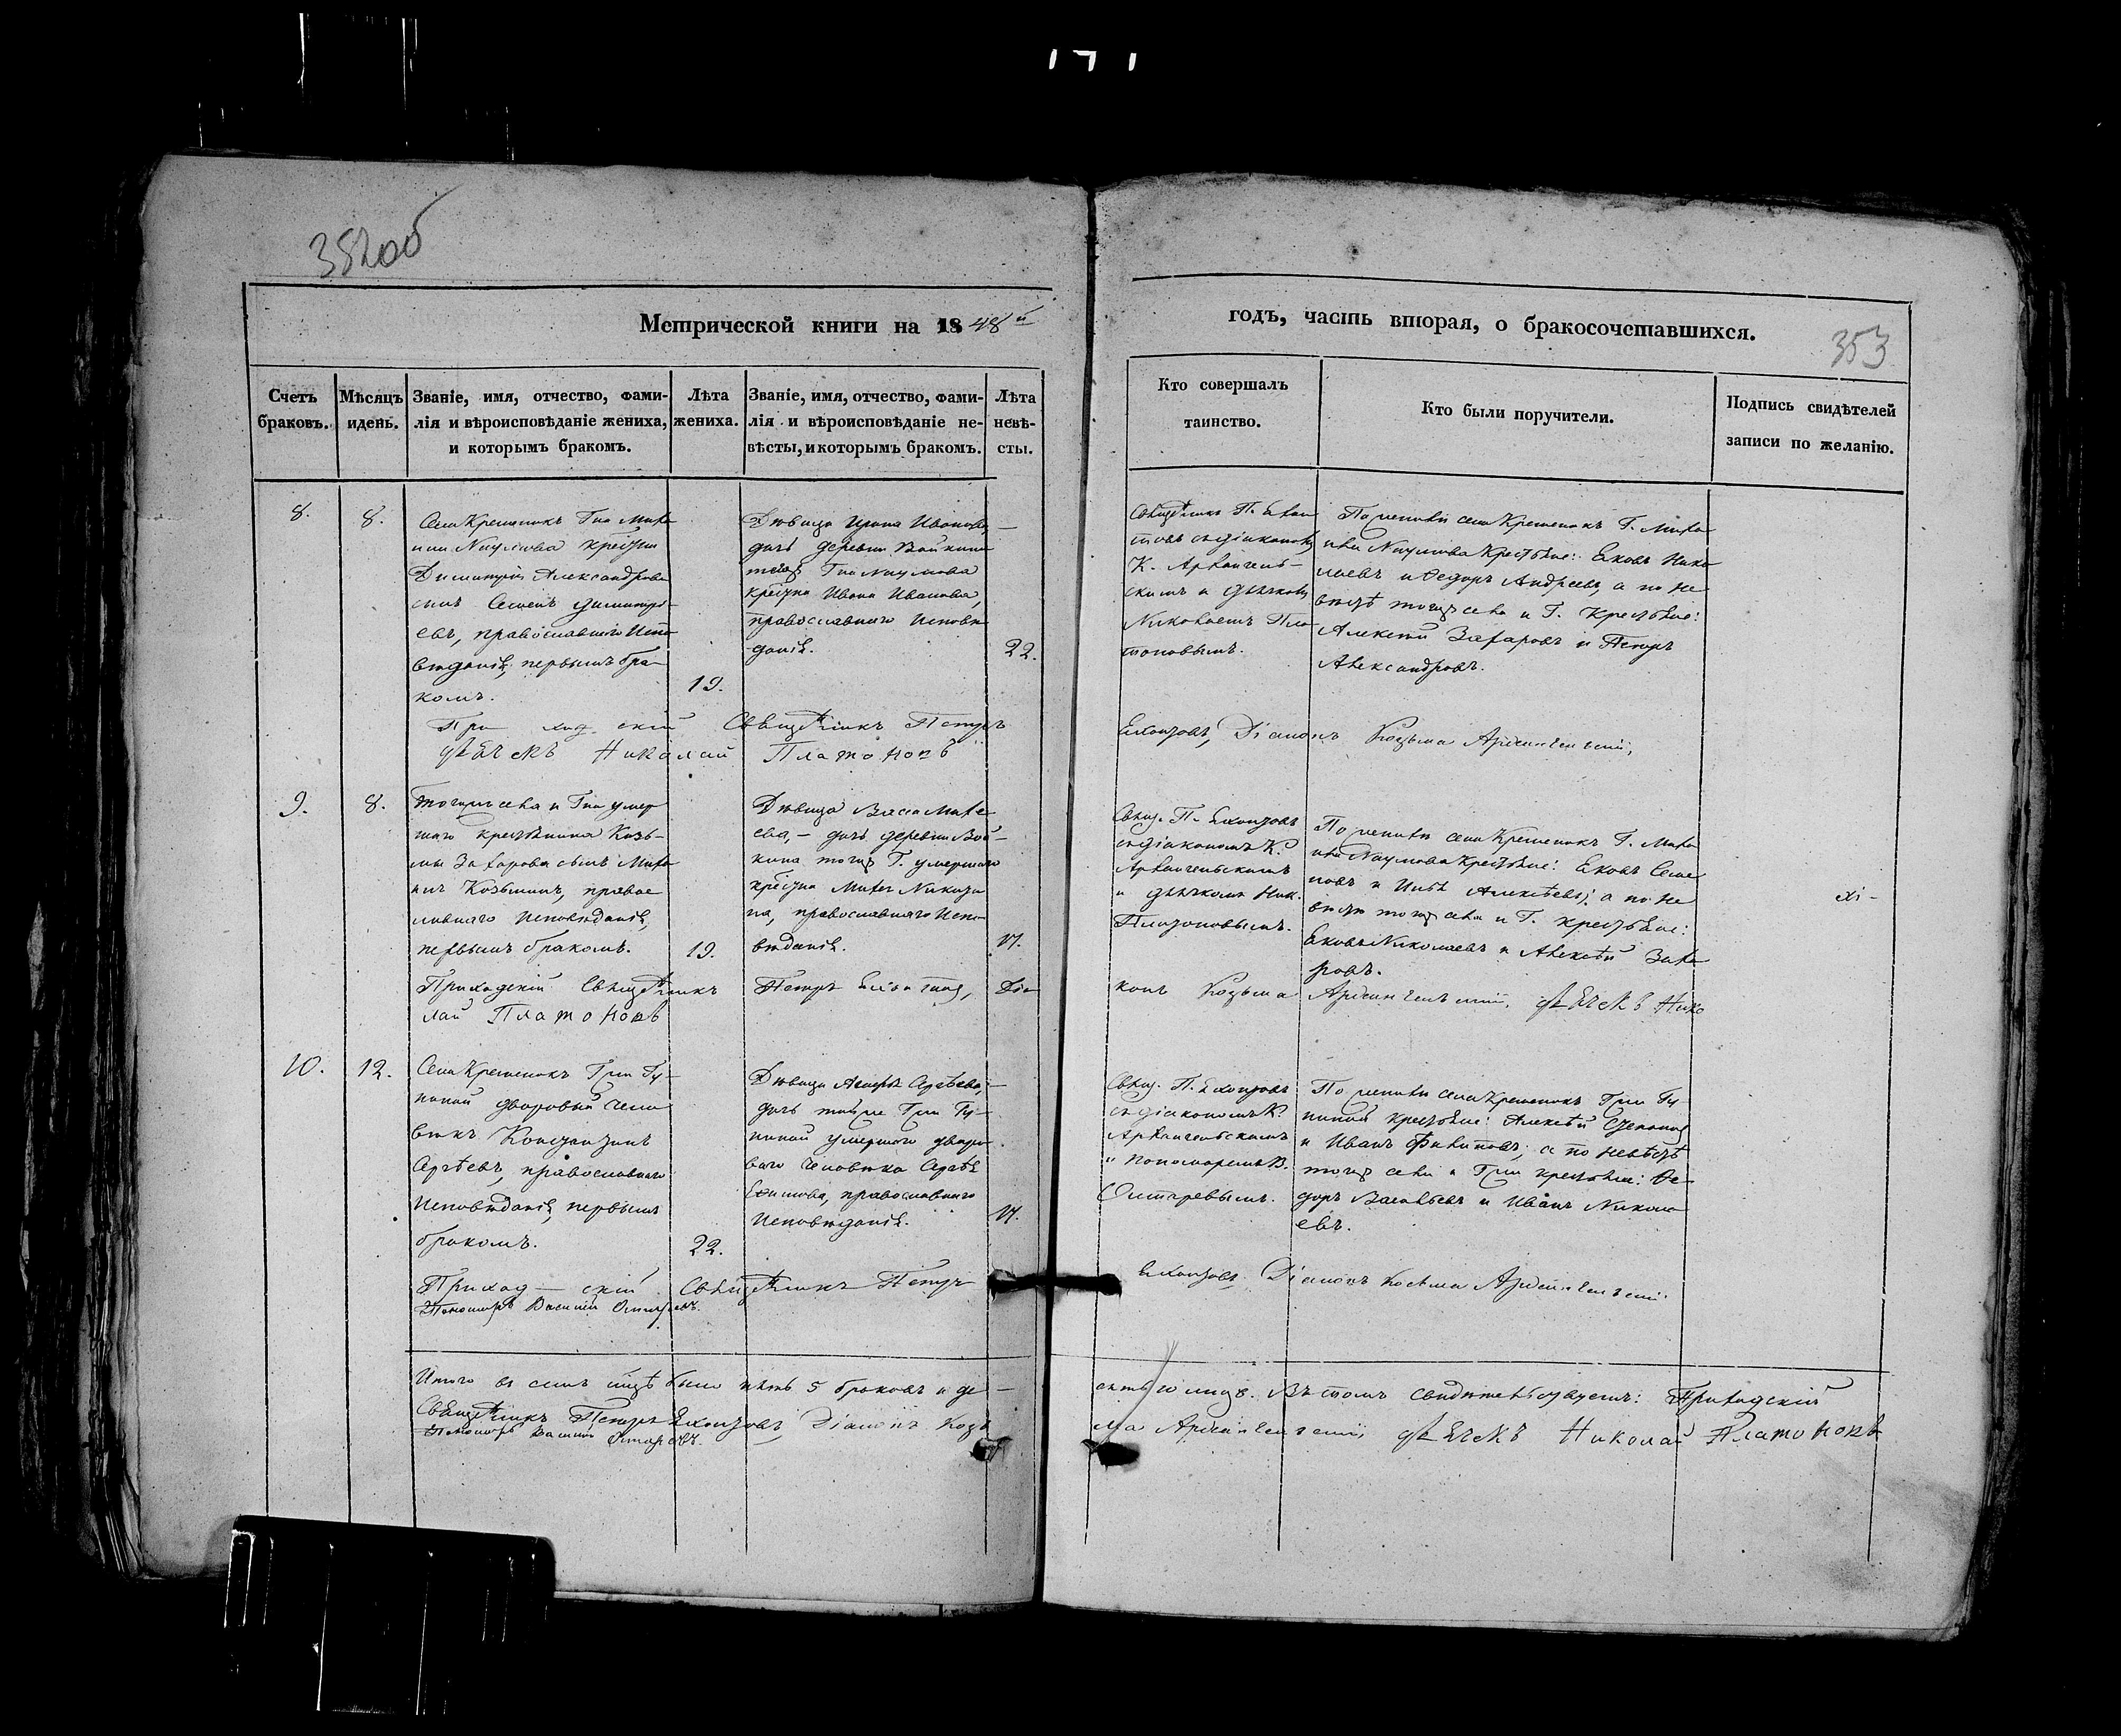 352об
Метрической книги на 1848й
годъ, часть вторая, о бракосочетавшихся.
353
Счетъ браковъ.
Мѣсяцъ и день.
Званіе, имя, отчество, фами-
лія и вѣроисповѣданіе жениха,
и которымъ бракомъ.
Лѣта жениха.
Званіе, имя, отчество, фами-
лія и вѣроисповѣданіе не-
вѣсты, и которымъ бракомъ.
Лѣта невѣ-
сты.
Кто совершалъ
таинство.
Кто были поручители.
Подпись свидѣтелей
записи по желанію.
8.
8.
Села Кременокъ Гна Миха
ила Наумова крестьян
Димитрія Александрова
сынъ Семенъ Димитрі-
евъ, православнаго Испо
вѣданія, первымъ бра-
комъ.
19.
Дѣвица Ирина Иванова,
дочь деревни Войкина
тогоже Гна Наумова
крестьна Ивана Иванова,
православнаго Исповѣ
данія.
22.
съ діакономъ
К. Архангель-
скимъ и дьячкомъ
Николаемъ Пла-
тоновымъ.
По женихѣ села Кременокъ Г. Миха
ила Наумова Крестьяне: Яковъ Нико
лаевъ и Ѳедоръ Андреевъ, а по не
вѣстѣ тогоже села и Г. Крестьяне:
Алексѣй Захаровъ и Петръ
Александровъ.
Приходскій Священникъ Петръ
Діаконъ Козьма Архангельскій,
дьячекъ Николай Платоновъ
9.
8.
Тогожъ села и Гна умер
шаго крестьянина Козь-
мы Захарова сынъ Миха
илъ Козьминъ, правос
лавнаго Исповѣданія,
первымъ бракомъ.
19.
Дѣвица Васса Матве
ева, - дочь деревни Вой-
кина тогоже Г. умершаго
крестьна Матвея Никити
на, православнаго Испо-
вѣданія.
17.
съ діакономъ К.
Архангельскимъ
и дьячкомъ Ник.
Платоновымъ.
По женихѣ села Кременокъ Г. Миха
ила Наумова Крестьяне: Яковъ Семе
новъ и Илья Алексѣевъ; а по не
вѣстѣ тогоже села и Г. крестьяне:
Яковъ Николаевъ и Алексѣй Заха
ровъ.
Приходскій Священникъ Петръ
Діа
конъ Козьма Архангельскій, дьячекъ Нико
лай Платоновъ
10.
12.
Села Кременокъ Гжи Гу-
ниной дворовый чело
вѣкъ Константинъ
Сергѣевъ, православнаго
Исповѣданія, первымъ
бракомъ.
22.
Дѣвица
Сергѣева,
дочь тойже Гжи Гу-
ниной умершаго дворо-
ваго человѣка Сергѣя
Ефимова, православнаго
Исповѣданія.
17.
съ діакономъ К.
Архангельскимъ
и пономаремъ В.
По женихѣ села Кременокъ Гжи Гу
ниной крестьяне: Алексѣй Степановъ
и Иванъ Филиповъ; а по невѣстѣ
тогоже села и Гжи крестьяне: Ѳе-
доръ Васильевъ и Иванъ Никола
евъ.
Приходскій Священникъ Петръ
Діаконъ Косьма Архангельскій
Пономарь Василій
Итого въ семъ мѣсяцѣ было пять 5 браковъ и де-
сять 10 лицъ. Въ томъ свидѣтельствуемъ: Приходскій
Священникъ Петръ
Діаконъ Козь
ма Архангельскій, дьячекъ Николай Платоновъ
Пономарь Василій